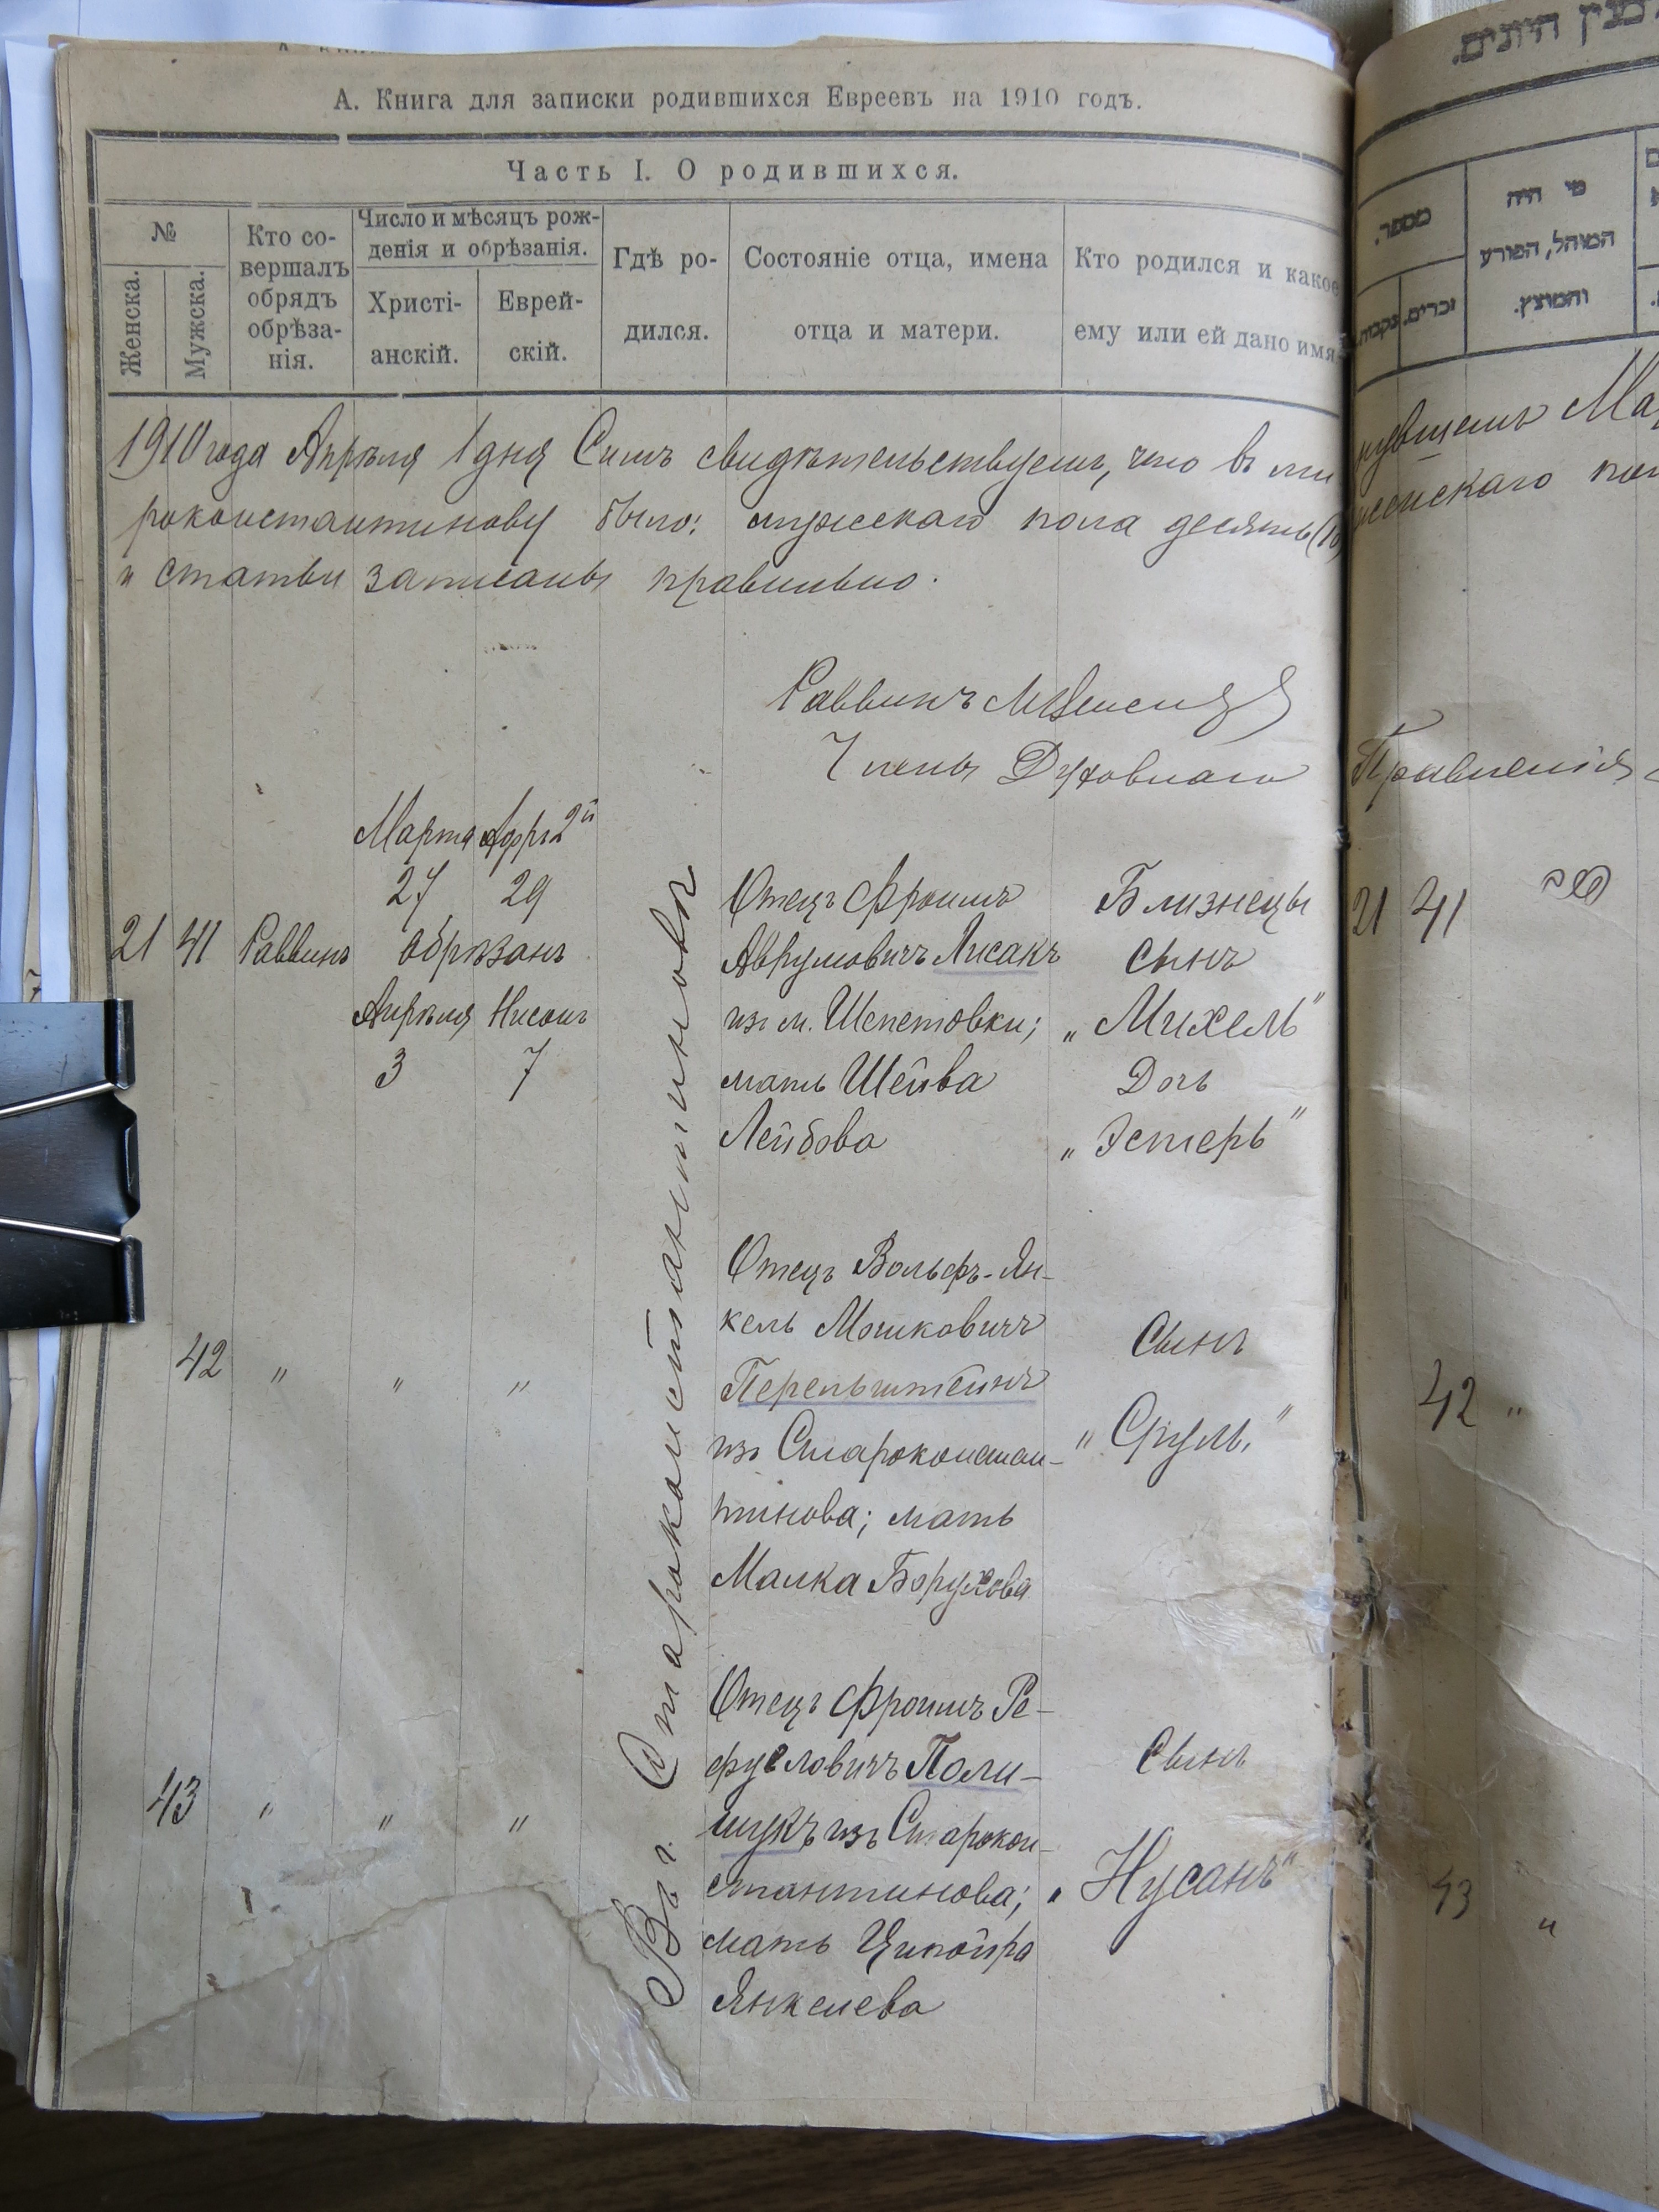 А. Книга для записки родившихся Евреевъ на 1910 годъ.
Часть I. О родившихся.
№
Женска.
Мужска.
Кто со-
вершалъ
обрядъ
обрѣза-
нія.
Число и мѣсяцъ рож-
денія и обрѣзанія.
Христі-
анскій.
Еврей-
скій.
Гдѣ ро-
дился.
Состояніе отца, имена
отца и матери.
Кто родился и какое
ему или ей дано имя
1910 года Апрѣля 1 дня Симъ свидѣтельствуемъ, что въ ми
роконстантинову было: мужскаго пола десять (10)
и статьи записаны правильно.
Раввинъ
Члены Духовнаго
Марта 2й
27 29
21 41 Раввинъ обрѣзанъ
Апрѣля Нисонъ
3 7
Въ г. Староконстантиновѣ
Отецъ Фроимъ
Аврумовичъ Лисакъ
изъ м. Шепетовки;
мать Шейва
Лейбова
Близнецы
Сынъ
„Михель"
Дочь
„Эстеръ"
42 " " "
Отецъ Вольфъ-Ян-
кель Мошковичъ
Перельштейнъ
изъ Староконстан-
тинова; мать
Малка Борухова
Сынъ
„Сруль"
43 " " "
Отецъ Фроимъ Ре-
фуловичъ Поли-
щукъ изъ Старокон-
стантинова;
мать Ципойра
Янкелева
Сынъ
„Нусанъ"
מנין היונים.
מספר.
נקבות.
זכרים.
מי היה
המוהל, הפורע
והמוצץ.
нувшемъ Мар
женскаго пол
Правленія
21 41
42 "
43 "